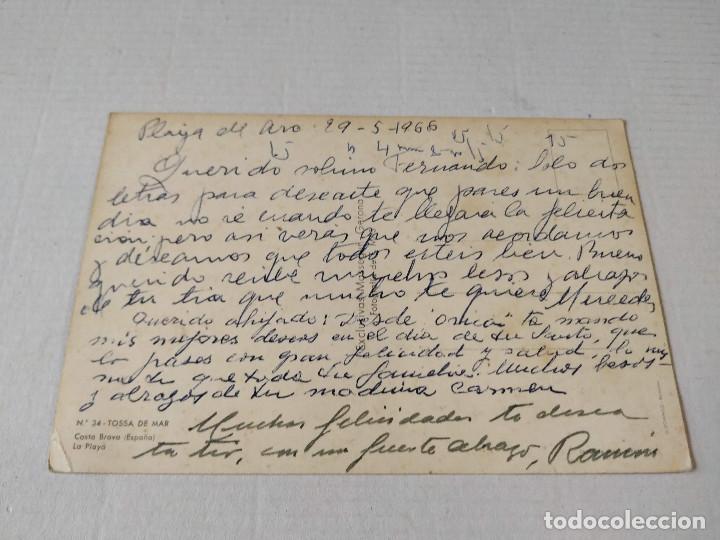 Playa de Aro 29-5-1966
Querido sobrino Fernando: Solo dos
letras para desearte que pases un buen
dia no se cuando te llegará la felicita
cion pero asi veras que nos acordamos
y deseamos que todos esteis bien. Bueno
querido recibe muchos besos y abrazos
de tu tia que mucho te quiere Mercedes
Querido ahijado: Desde te mando
mis mejores deseos en el dia de tu Santo, que
lo pases con gran felicidad y salud, lo mis
mo tu que toda tu familia. Muchos besos
y abrazos de tu madrina Carmen
Muchas felicidades te desea
tu tio, con un fuerte abrazo, Ramón
N.º 34 - TOSSA DE MAR
Costa Brava (España)
La Playa
Gerona
todocoleccion.net